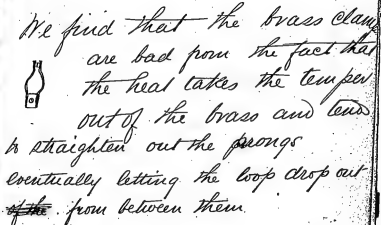 We find that the brass clamps
are bad from the fact that
the heat takes the temper
out of the brass and tends
to straighten out the prongs
eventually letting the loop drop out
of the from between them